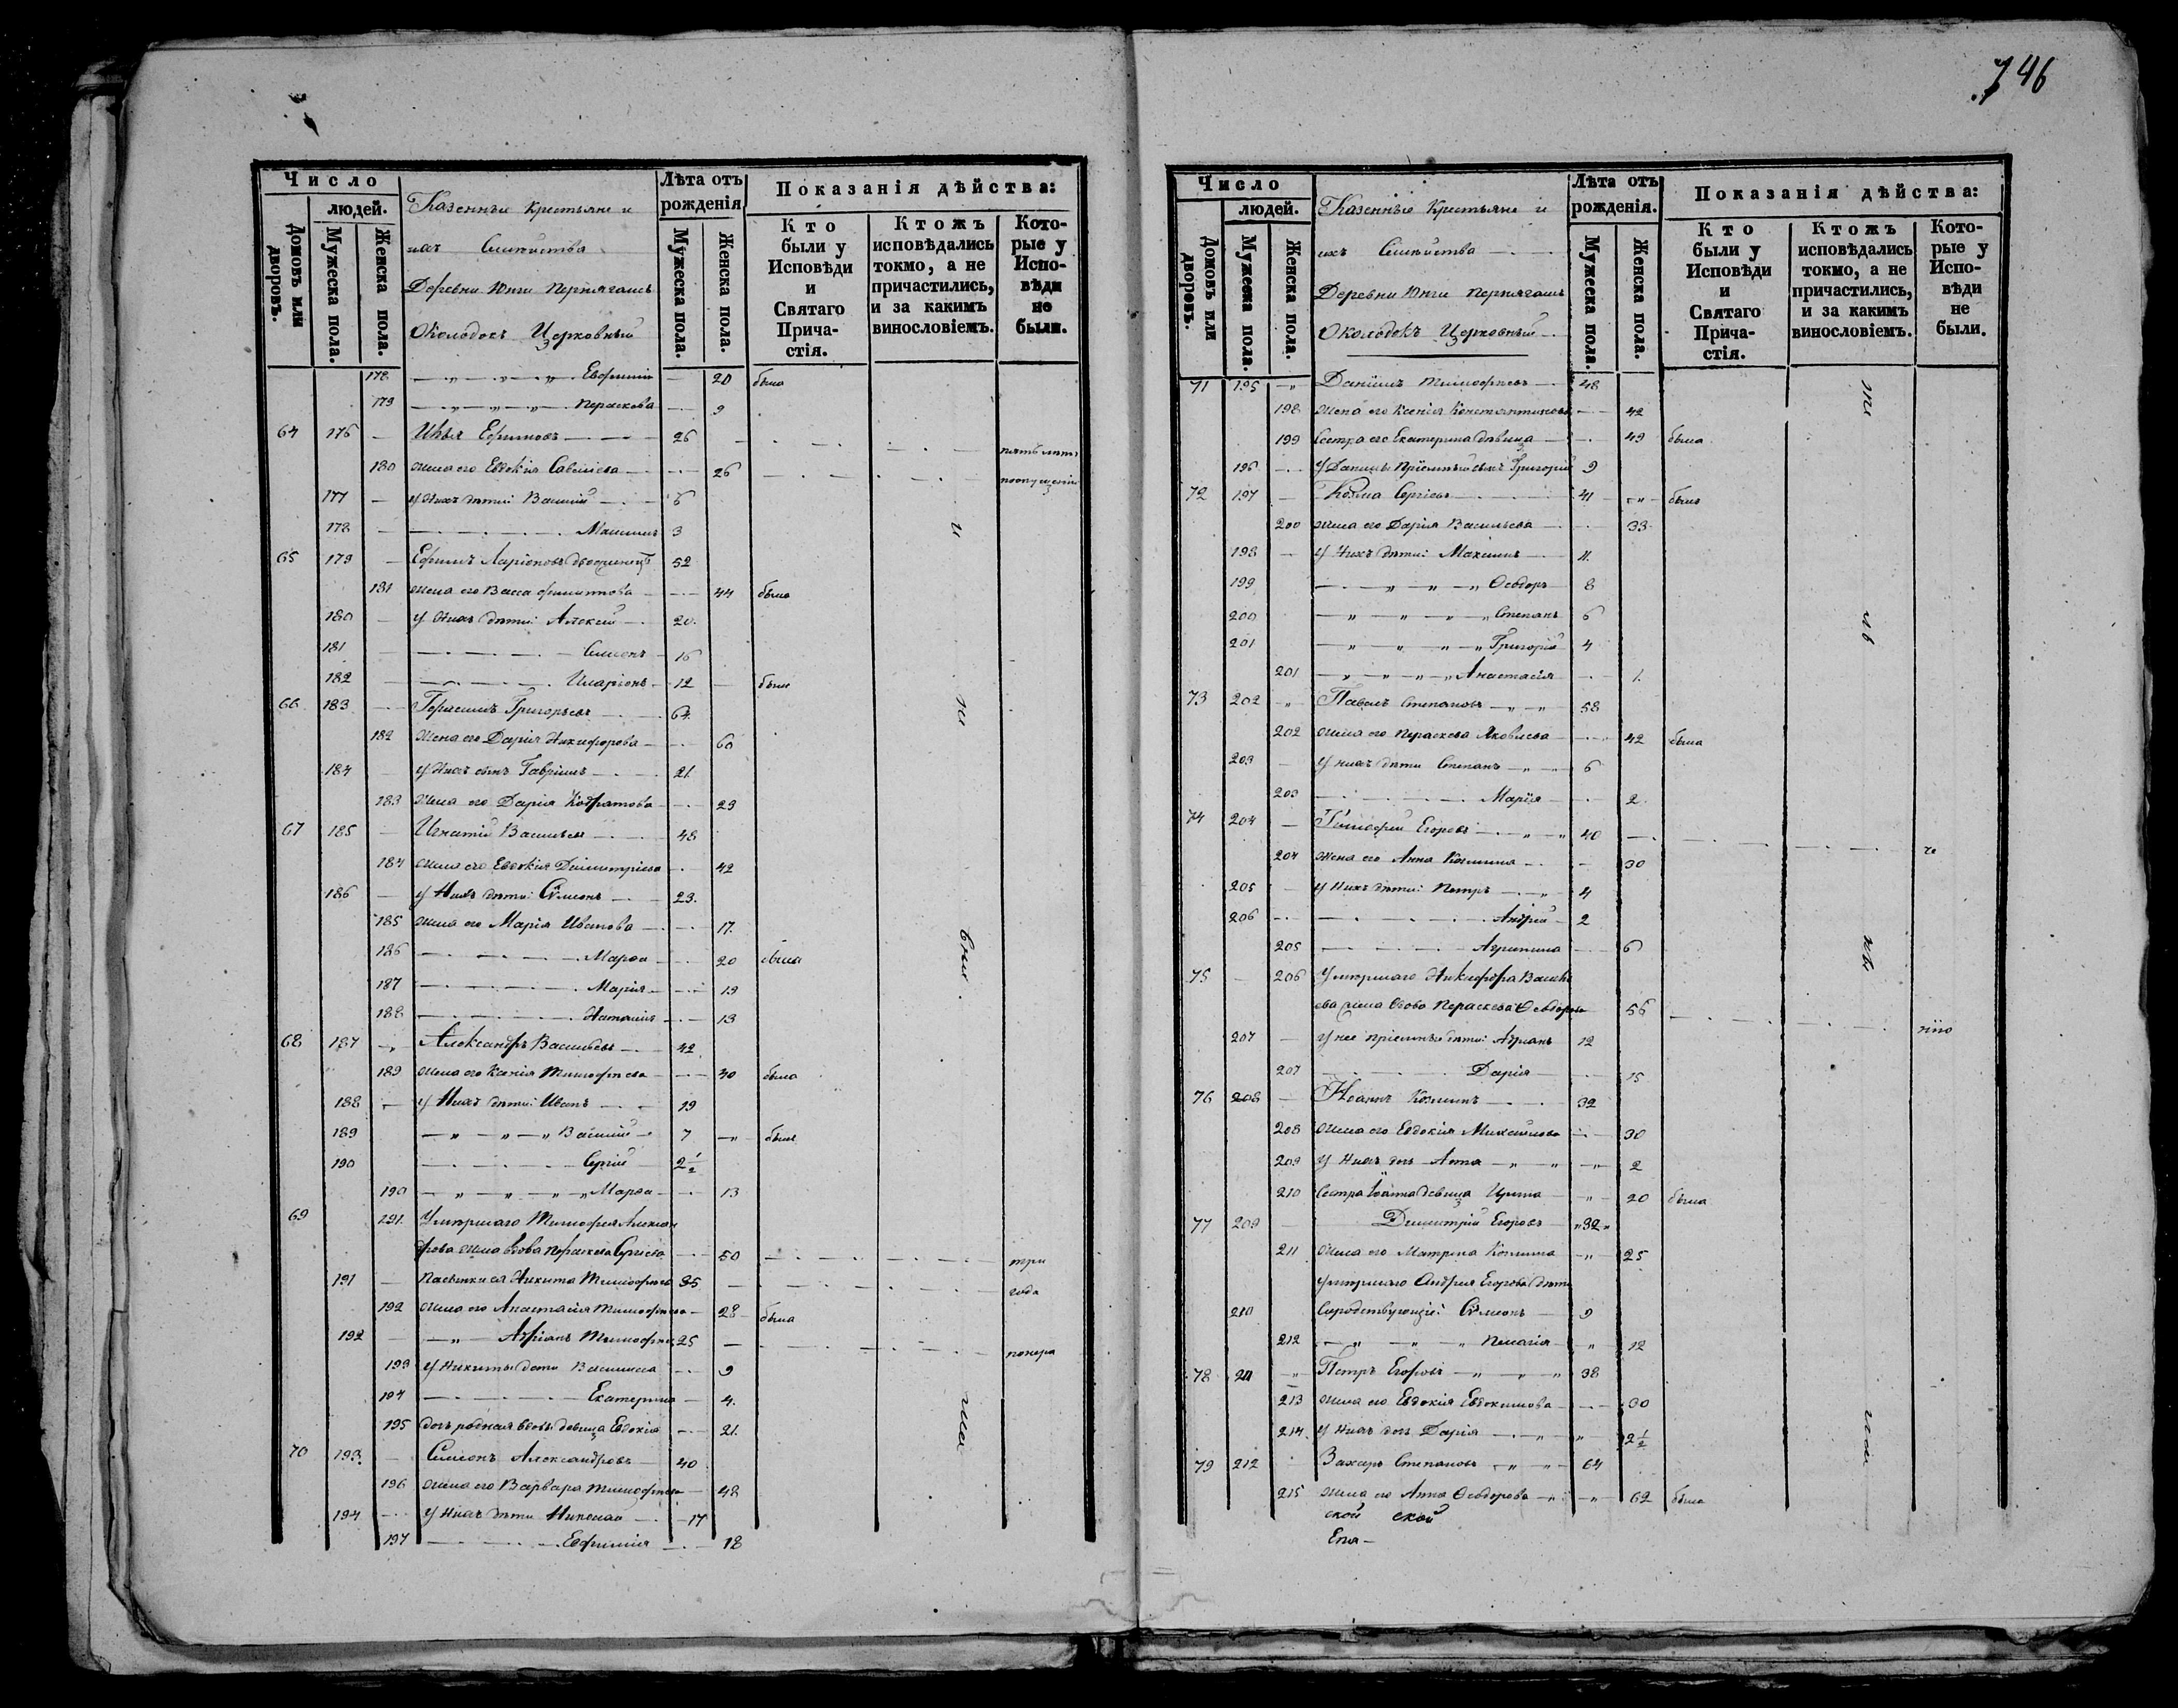 746
Число
людей.
Домовъ или дворовъ.
Мужеска пола.
Женска пола.
Казенные крестьяне и
ихъ Семейства
Деревни Юнги
Околодокъ Церковный
Лѣта отъ рожденія
Мужеска пола.
Женска пола.
Показанія дѣйства:
Кто были у Исповѣди и Святаго Причастія.
Ктожъ исповѣдались токмо, а не причастились, и за какимъ винословіемъ.
Которые у Исповѣди не были.
178 Евфимія 20 была
179 Параскева 9
64 176 Ефимовъ 26 пять лѣтъ
180 жена его Евдокія Савельева 26
177 у нихъ дѣти: Василій 6
178 Максимъ 3
65 179 Ефимъ Ларіоновъ 52
181 жена его Васса Филиппова 44 была
180 у нихъ дѣти: Алексѣй 20
181 Симеонъ 16
182 Иларіонъ 12 былъ
66 183 Герасимъ Григорьевъ 64
182 жена его Дарія Никифорова 60
184 у нихъ сынъ Гавріилъ 21
183 жена его Дарія 23
67 185 Игнатій Васильевъ 48
184 жена его Евдокія Димитріева 42
186 у нихъ дѣти: Сѵмеонъ 23
185 жена его Марія Иванова 17
186 Марѳа 20 была
187 Марія 19
188 13
68 187 Александръ Васильевъ 42
189 жена его Ксенія Тимофѣева 40 была
188 у нихъ дѣти: Иванъ 19
189 Василій 7 былъ
190 Сергій 2½
190 Марѳа 13
69 191 Умершаго Тимофея Алексан
дрова жена вдова Параскева Сергѣева 50 три
191 Никита Тимофѣевъ 35 года
192 жена его Анастасія Тимофѣева 28 была
192 Адріанъ Тимофѣевъ 25
193 у Никиты дѣти Василиса 9
194 Екатерина 4
195 дочь родная вдовы девица Евдокія 21
70 193 Симеонъ Александровъ 40
196 жена его Варвара Тимофѣева 48
194 у нихъ дѣти Николай 17
197 Евфимія 18
Число
людей.
Домовъ или дворовъ.
Мужеска пола.
Женска пола.
Казенные крестьяне и
ихъ Семейства
Деревни Юнги
Околодокъ Церковный
Лѣта отъ рожденія.
Мужеска пола.
Женска пола.
Показанія дѣйства:
Кто были у Исповѣди и Святаго Причастія.
Ктожъ исповѣдались токмо, а не причастились, и за какимъ винословіемъ.
Которые у Исповѣди не были.
71 195 Даніилъ Тимофѣевъ 48
198 жена его Ксенія Константинова 42
199 Сестра его Екатерина дѣвица 49 была
196 У Данилы пріемный сынъ Григорій 9
72 197 Козма Сергіевъ 41 былъ
200 жена его Дарія Васильева 33
198 У нихъ дѣти: Максимъ 11
199 Ѳеодоръ 8
200 Степанъ 6
201 Григорій 4
201 Анастасія 1
73 202 Павелъ Степановъ 58
202 жена его Параскева Яковлева 42 была
203 У нихъ дѣти Степанъ 6
203 Марія 2
74 204 Тимофей Егоровъ 40
204 жена его Анна Козмина 30
205 У нихъ дѣти: Петръ 4
206 Андрей 2
205 Агрипина 6
75 206 Умершаго Никифора Василь
ева жена вдова Параскева Ѳеодорова 56
207 У нее пріемные дѣти: Адрианъ 12
207 Дарія 15
76 208 Иоаннъ Козминъ 32
208 жена его Евдокія Михайлова 30
209 У нихъ дочь Анна 2
210 Сестра Іоанна девица Ирина 20 была
77 209 Димитрій Егоровъ 32
211 жена его Матрена Козмина 25
Умершаго Андрея Егорова дѣти
210 Сѵмеонъ 9
212 Пелагія 12
78 211 Петръ Егоровъ 38
213 жена его Евдокія Евдокимова 30
214 У нихъ дочь Дарія 2½
79 212 Захаръ Степановъ 64
215 жена его Анна Ѳеодорова 62 была
ской ской